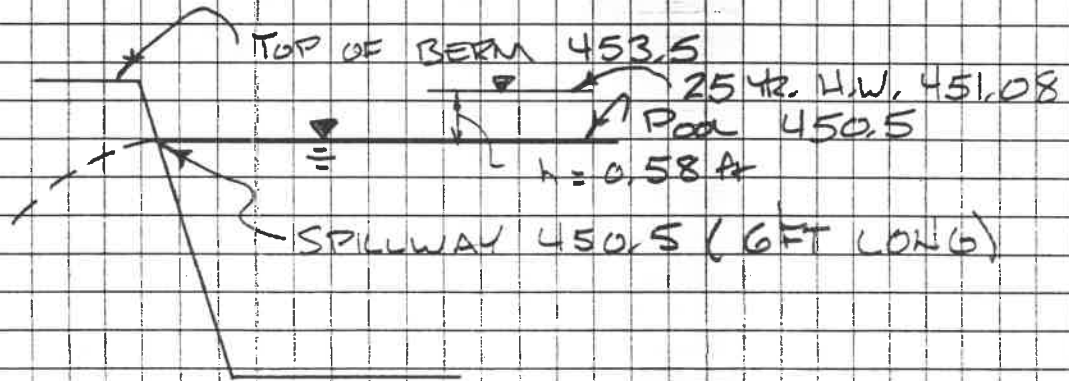 TOP OF BERM 453.5
25 YR. H.W. 451.08
POOL 450.5
h = 0.58 ft
SPILLWAY 450.5 (6 FT LONG)